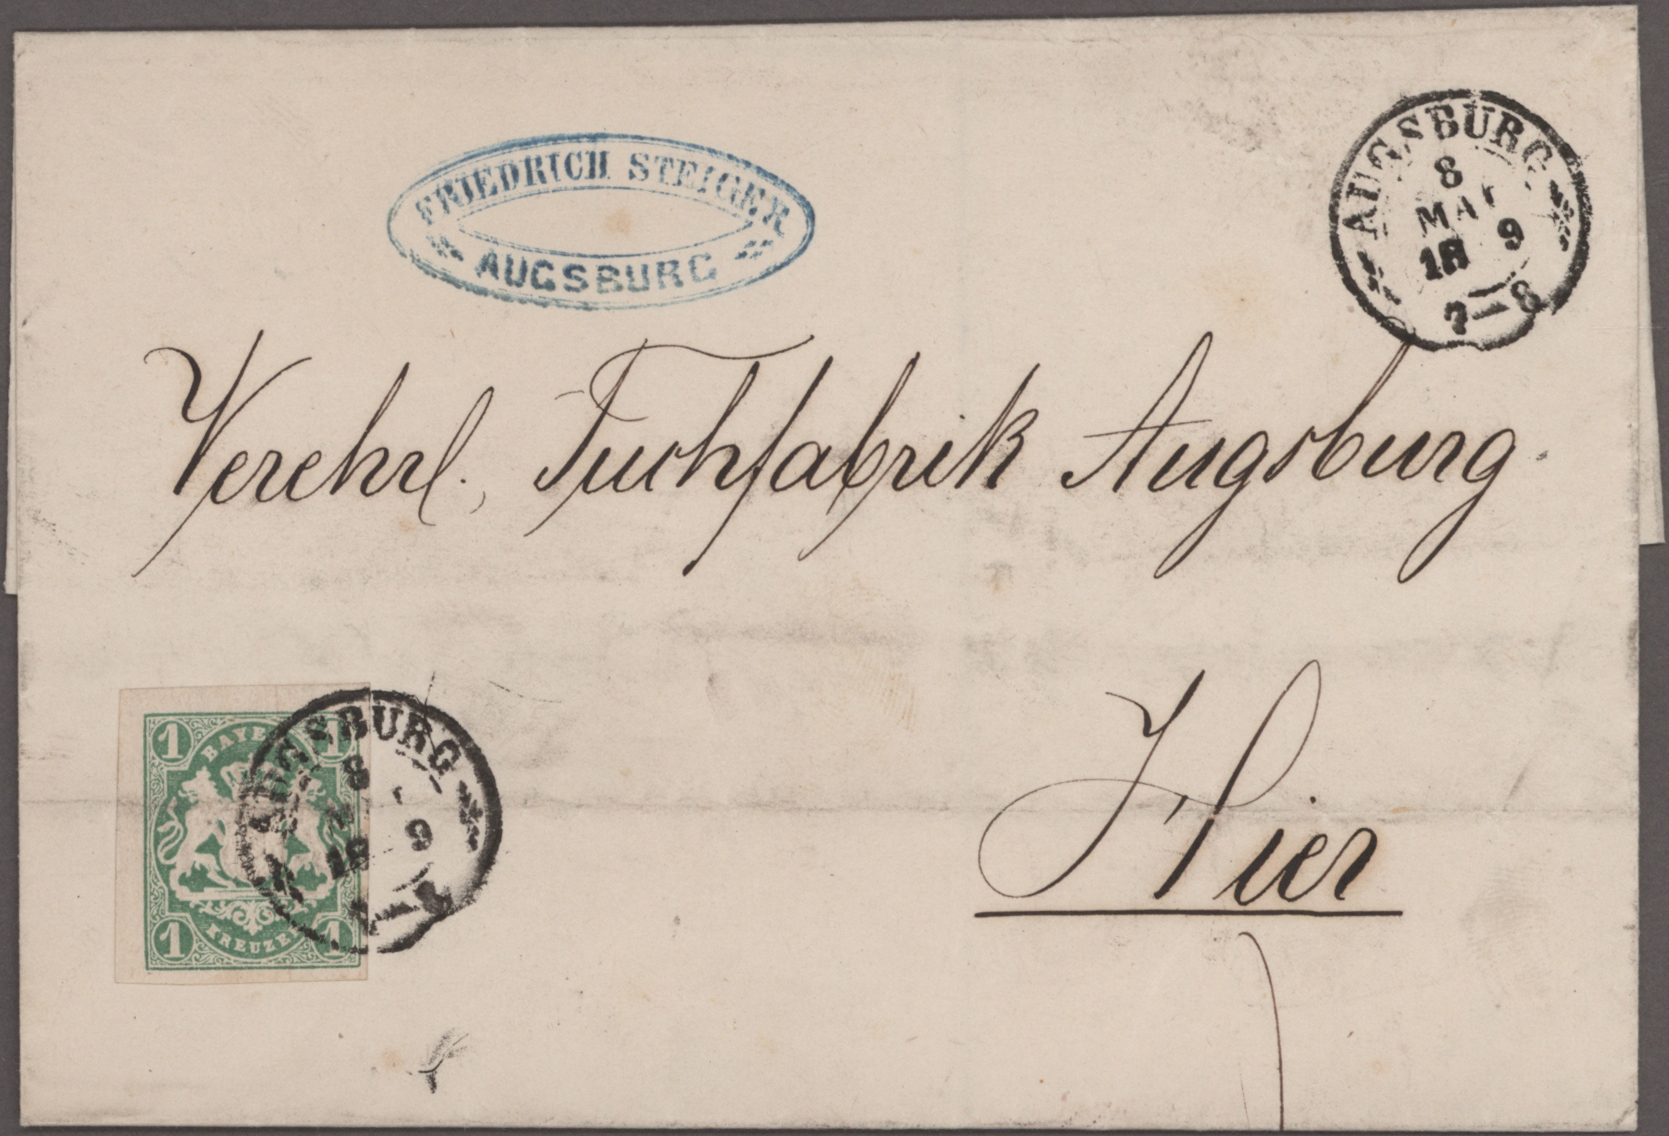 FRIEDRICH STEIGER
AUGSBURG
AUGSBURG
8
MAI
18 9
7—8
Verehrl. Tuchfabrik Augsburg.
Hier
1 1
BAYERN
KREUZER
1 1
AUGSBURG
8
18 9